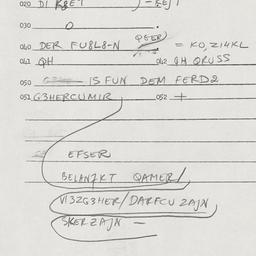 020 DI K8ET
030 O .
040 DER FU8L8-N = KO,ZI4KL
041 QH 042 QH QRUSS
050 IS FUN DEM FERD2
051 G3HERCUMIR 052 +
EFSER
BELANZKT QAMER/
VI3ZG3HER/DARFCU ZAJN
SKERZAJN —